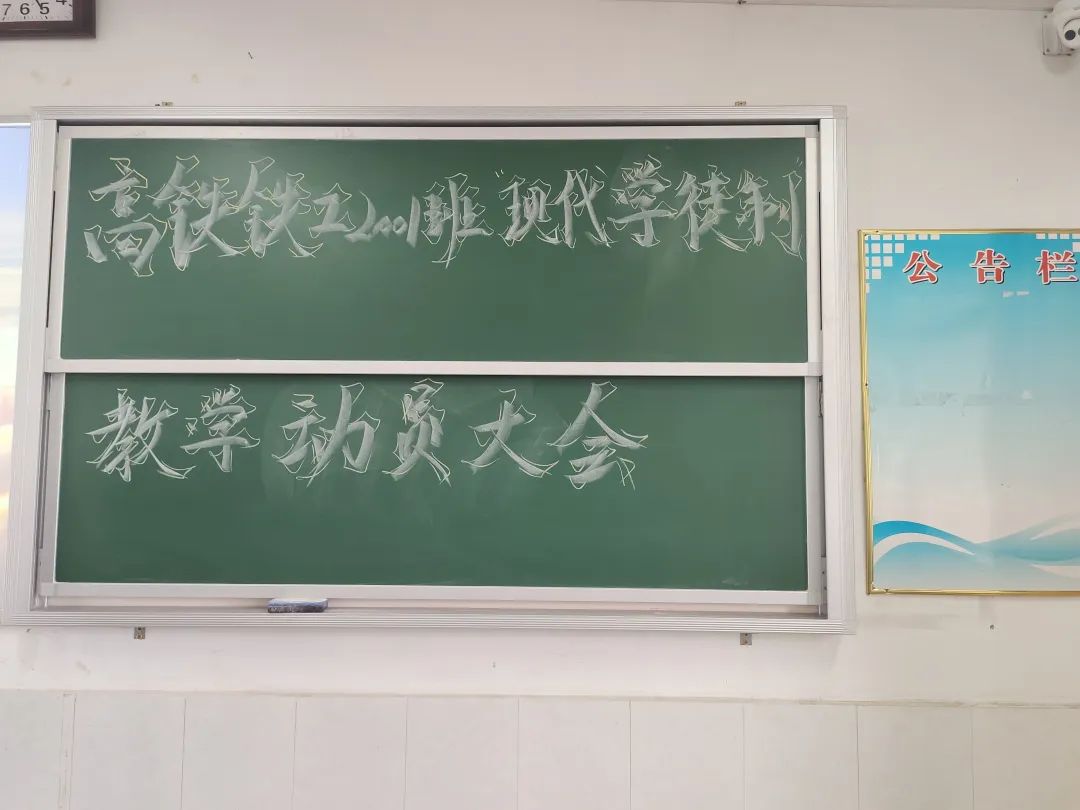 765
高铁铁工2001班“现代学徒制”
公告栏
教学动员大会